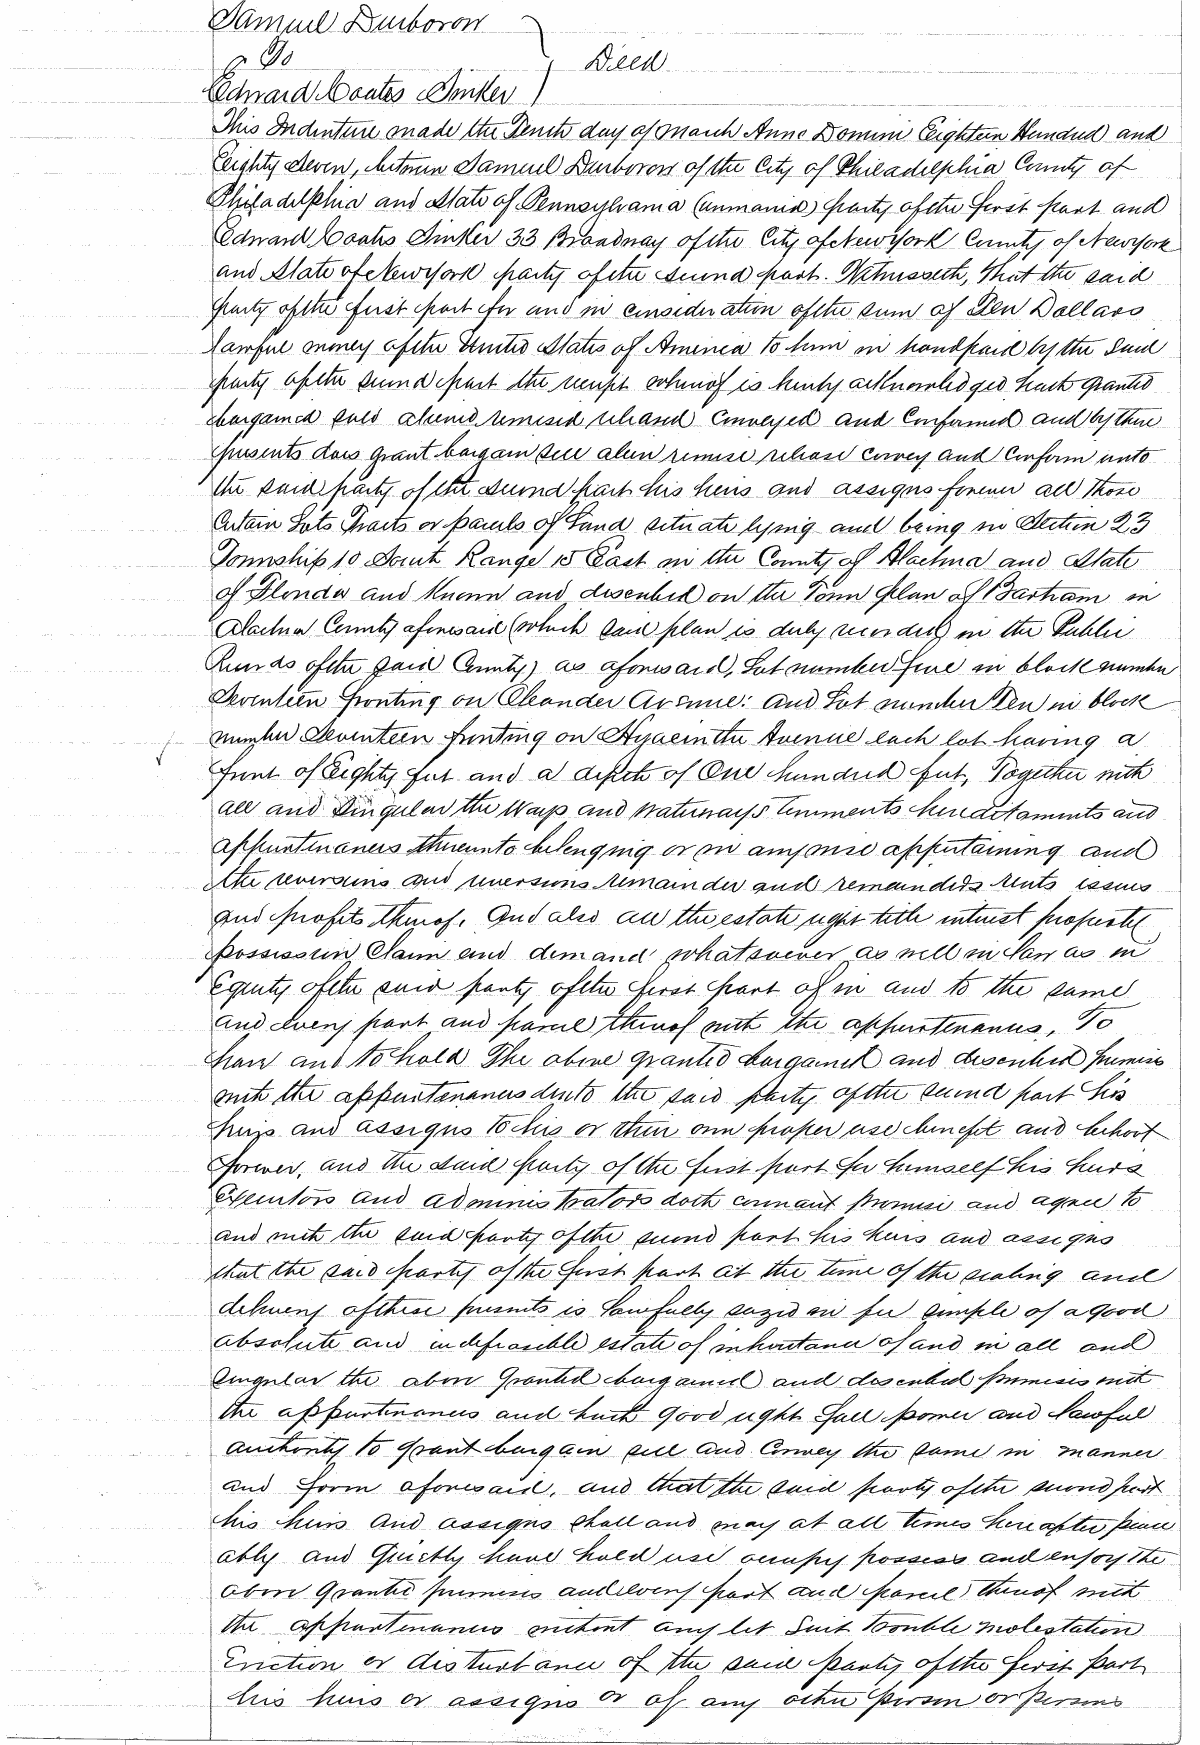 Samuel Durborow
To
Deed
Edward Coates Tinker
This Indenture made the Tenth day of March Anno Domini Eighteen Hundred and
Eighty Seven, between Samuel Durborow of the City of Philadelphia County of
Philadelphia and State of Pennsylvania (unmarried) party of the first part and
Edward Coates Tinker 33 Broadway of the City of New York County of New York
and State of New York party of the second part. Witnesseth, That the said
party of the first part for and in consideration of the sum of Ten Dollars
lawful money of the United States of America to him in hand paid by the Said
party of the second part the receipt whereof is hereby acknowledged hath granted
bargained sold aliened remised released conveyed and Confirmed and by these
presents does grant bargain sell alien remise release convey and Confirm unto
the said party of the second part his heirs and assigns forever all those
Certain Lots Tracts or parcels of Land situate lying and being in Section 23
Township 10 South Range 15 East in the County of Alachua and State
of Florida and Known and described on the Town plan of Bartram in
Alachua County aforesaid (which said plan is duly recorded) in the Public
Records of the said County) as aforesaid, Lot number five in block number
Seventeen fronting on Oleander Avenue: and Lot number Ten in block
number Seventeen fronting on Hyacinthe Avenue each lot having a
front of Eighty feet and a depth of One hundred feet, Together with
all and Singular the Ways and waterways tenements hereditaments and
appurtenances thereunto belonging or in anywise appertaining and
the reversions and reversions remainder and remainders rents issues
and profits thereof, And also all the estate right title interest property
possession Claim and demand whatsoever as well in law as in
Equity of the said party of the first part of in and to the same
and every part and parcel thereof with the appurtenances, To
have and to hold The above granted bargained and described premises
with the appurtenances unto the said party of the second part his
heirs and assigns to his or their own proper use benefit and behoof
forever, and the said party of the first part for himself his heirs
Executors and administrators doth covenant promise and agree to
and with the said party of the second part his heirs and assigns
that the said party of the first part at the time of the sealing and
delivery of these presents is lawfully seized in fee simple of a good
absolute and indefeasible estate of inheritance of and in all and
singular the above Granted bargained and described premises with
the appurtenances and hath good right full power and lawful
authority to grant bargain sell and Convey the same in manner
and form aforesaid, and that the said party of the second part
his heirs And assigns shall and may at all times hereafter peace
ably and Quietly have hold use occupy possess and enjoy the
above Granted premises and every part and parcel thereof with
the appurtenances without any let Suit trouble molestation
Eviction or disturbance of the said party of the first part
his heirs or assigns or of any other person or persons